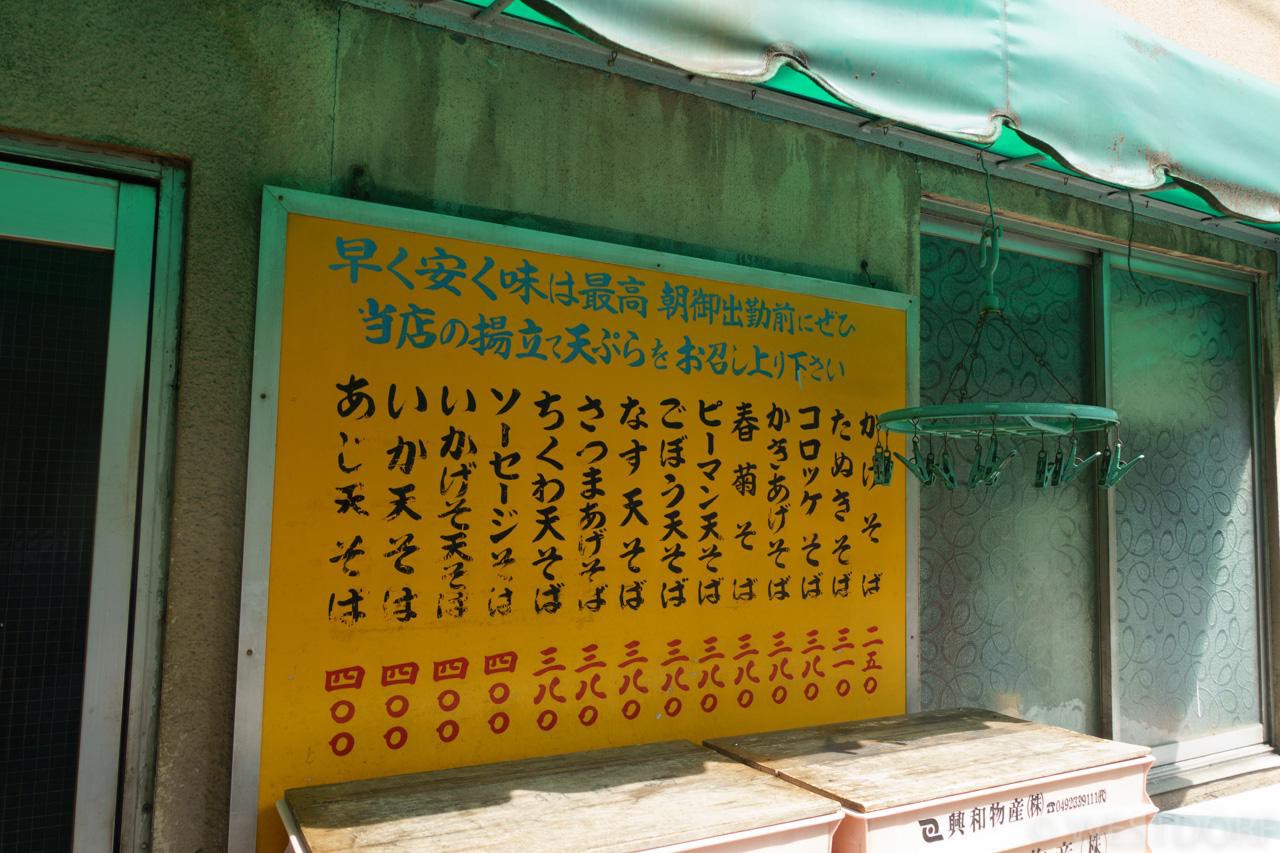 早く安く味は最高 朝御出勤前にぜひ
当店の揚立て天ぷらをお召し上り下さい
かけそば 二五〇
たぬきそば 三一〇
コロッケそば 三八〇
かきあげそば 三八〇
春菊そば 三八〇
ピーマン天そば 三八〇
ごぼう天そば 三八〇
なす天そば 三八〇
さつまあげそば 三八〇
ちくわ天そば 三八〇
ソーセージそば 四〇〇
いかげそ天そば 四〇〇
いか天そば 四〇〇
あじ天そば 四〇〇
興和物産(株) ☎0492339111代